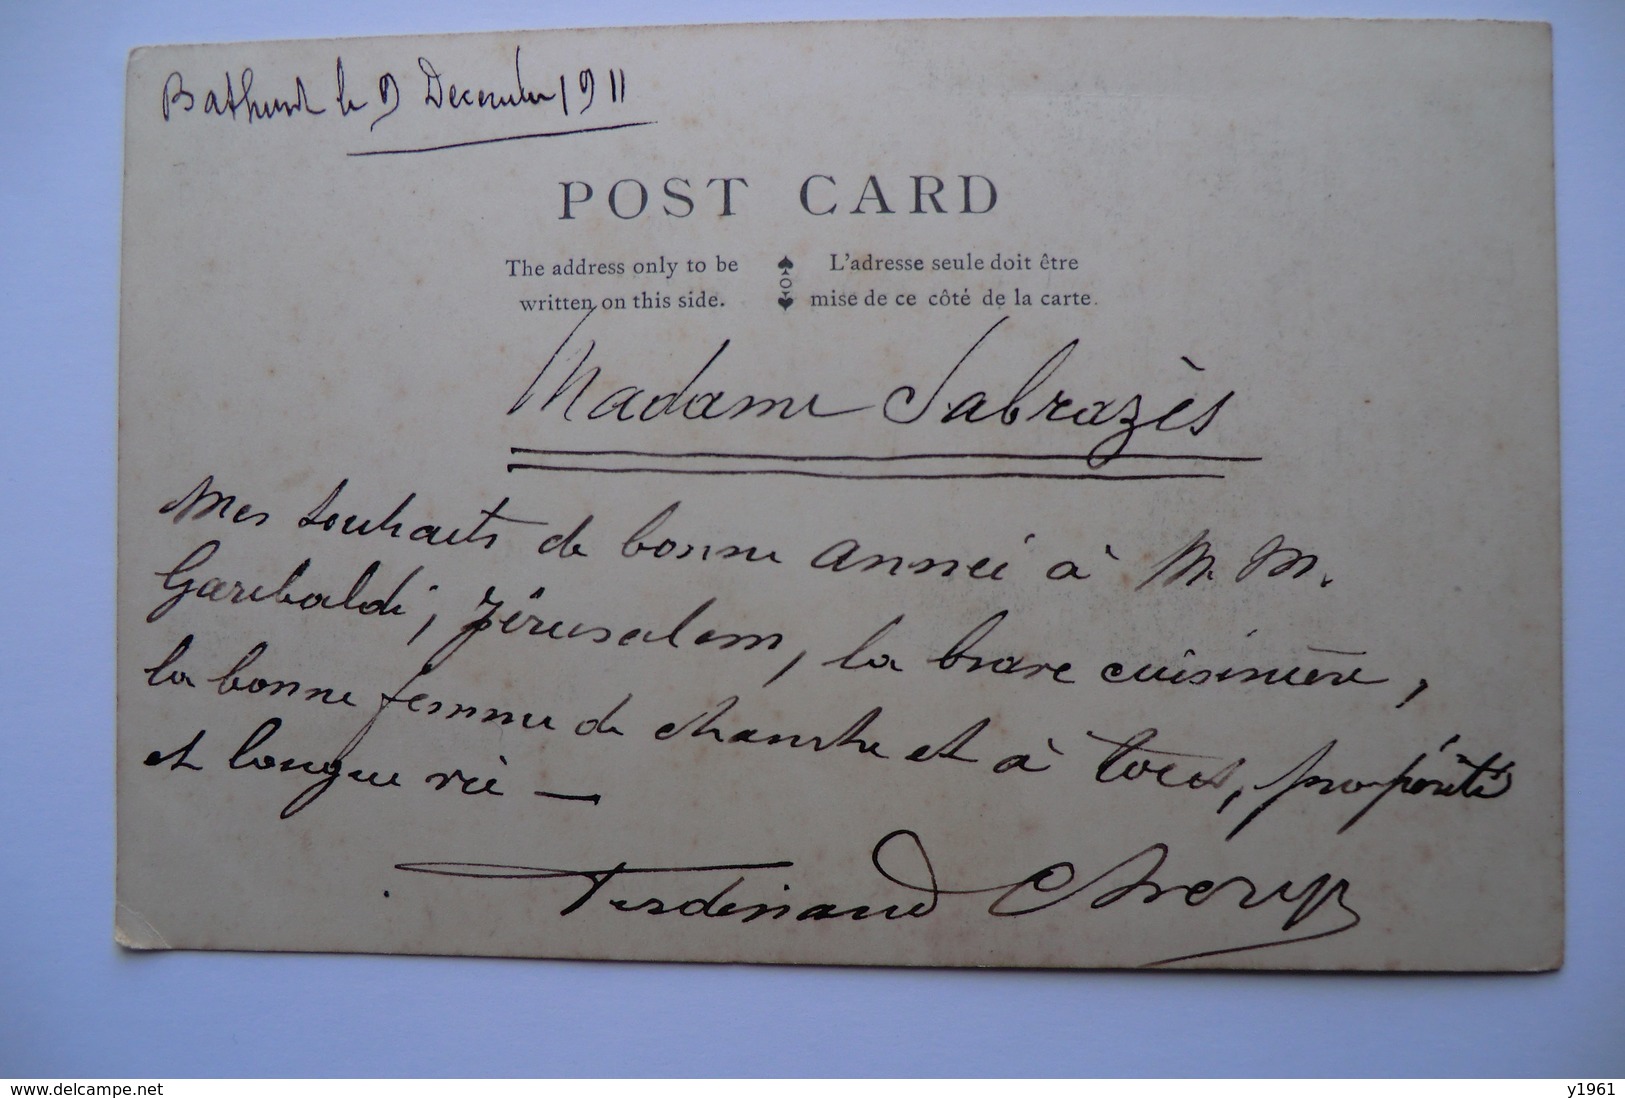 Bathurst le 9 Decembre 1911
POST CARD
The address only to be
written on this side.
L'adresse seule doit être
mise de ce côté de la carte.
Madame Sabrazès
Mes souhaits de bonne année à M. M.
Garibaldi, Jérusalem, la brave cuisinière,
la bonne femme de chambre et à tous, prospérité
et longue vie —
Ferdinand
delcampe.net
y1961